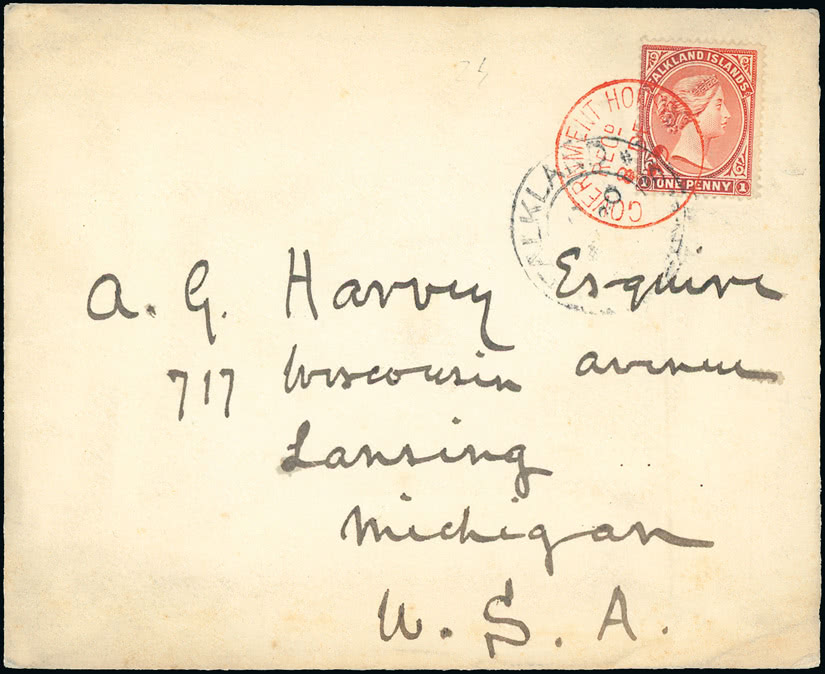 FALKLAND ISLANDS
GOVERNMENT HO
RECP
1 ONE PENNY 1
FALKLAND
A. G. Harvey Esquire
717 Wisconsin avenue
Lansing
Michigan
U. S. A.